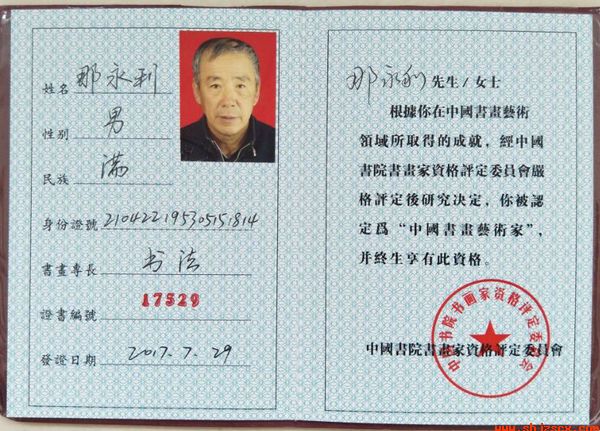 姓名 那永利
性别 男
民族 满
身份證號 210422195305151814
書畫專長 书法
證書編號 17529
發證日期 2017.7.29
那永利 先生/女士
根據你在中國書畫藝術
領域所取得的成就，經中國
書院書畫家資格評定委員會嚴
格評定後研究决定，你被認
定爲“中國書畫藝術家”，
并終生享有此資格。
中國書院書畫家資格評定委員會
中国书院书画家资格评定委员会